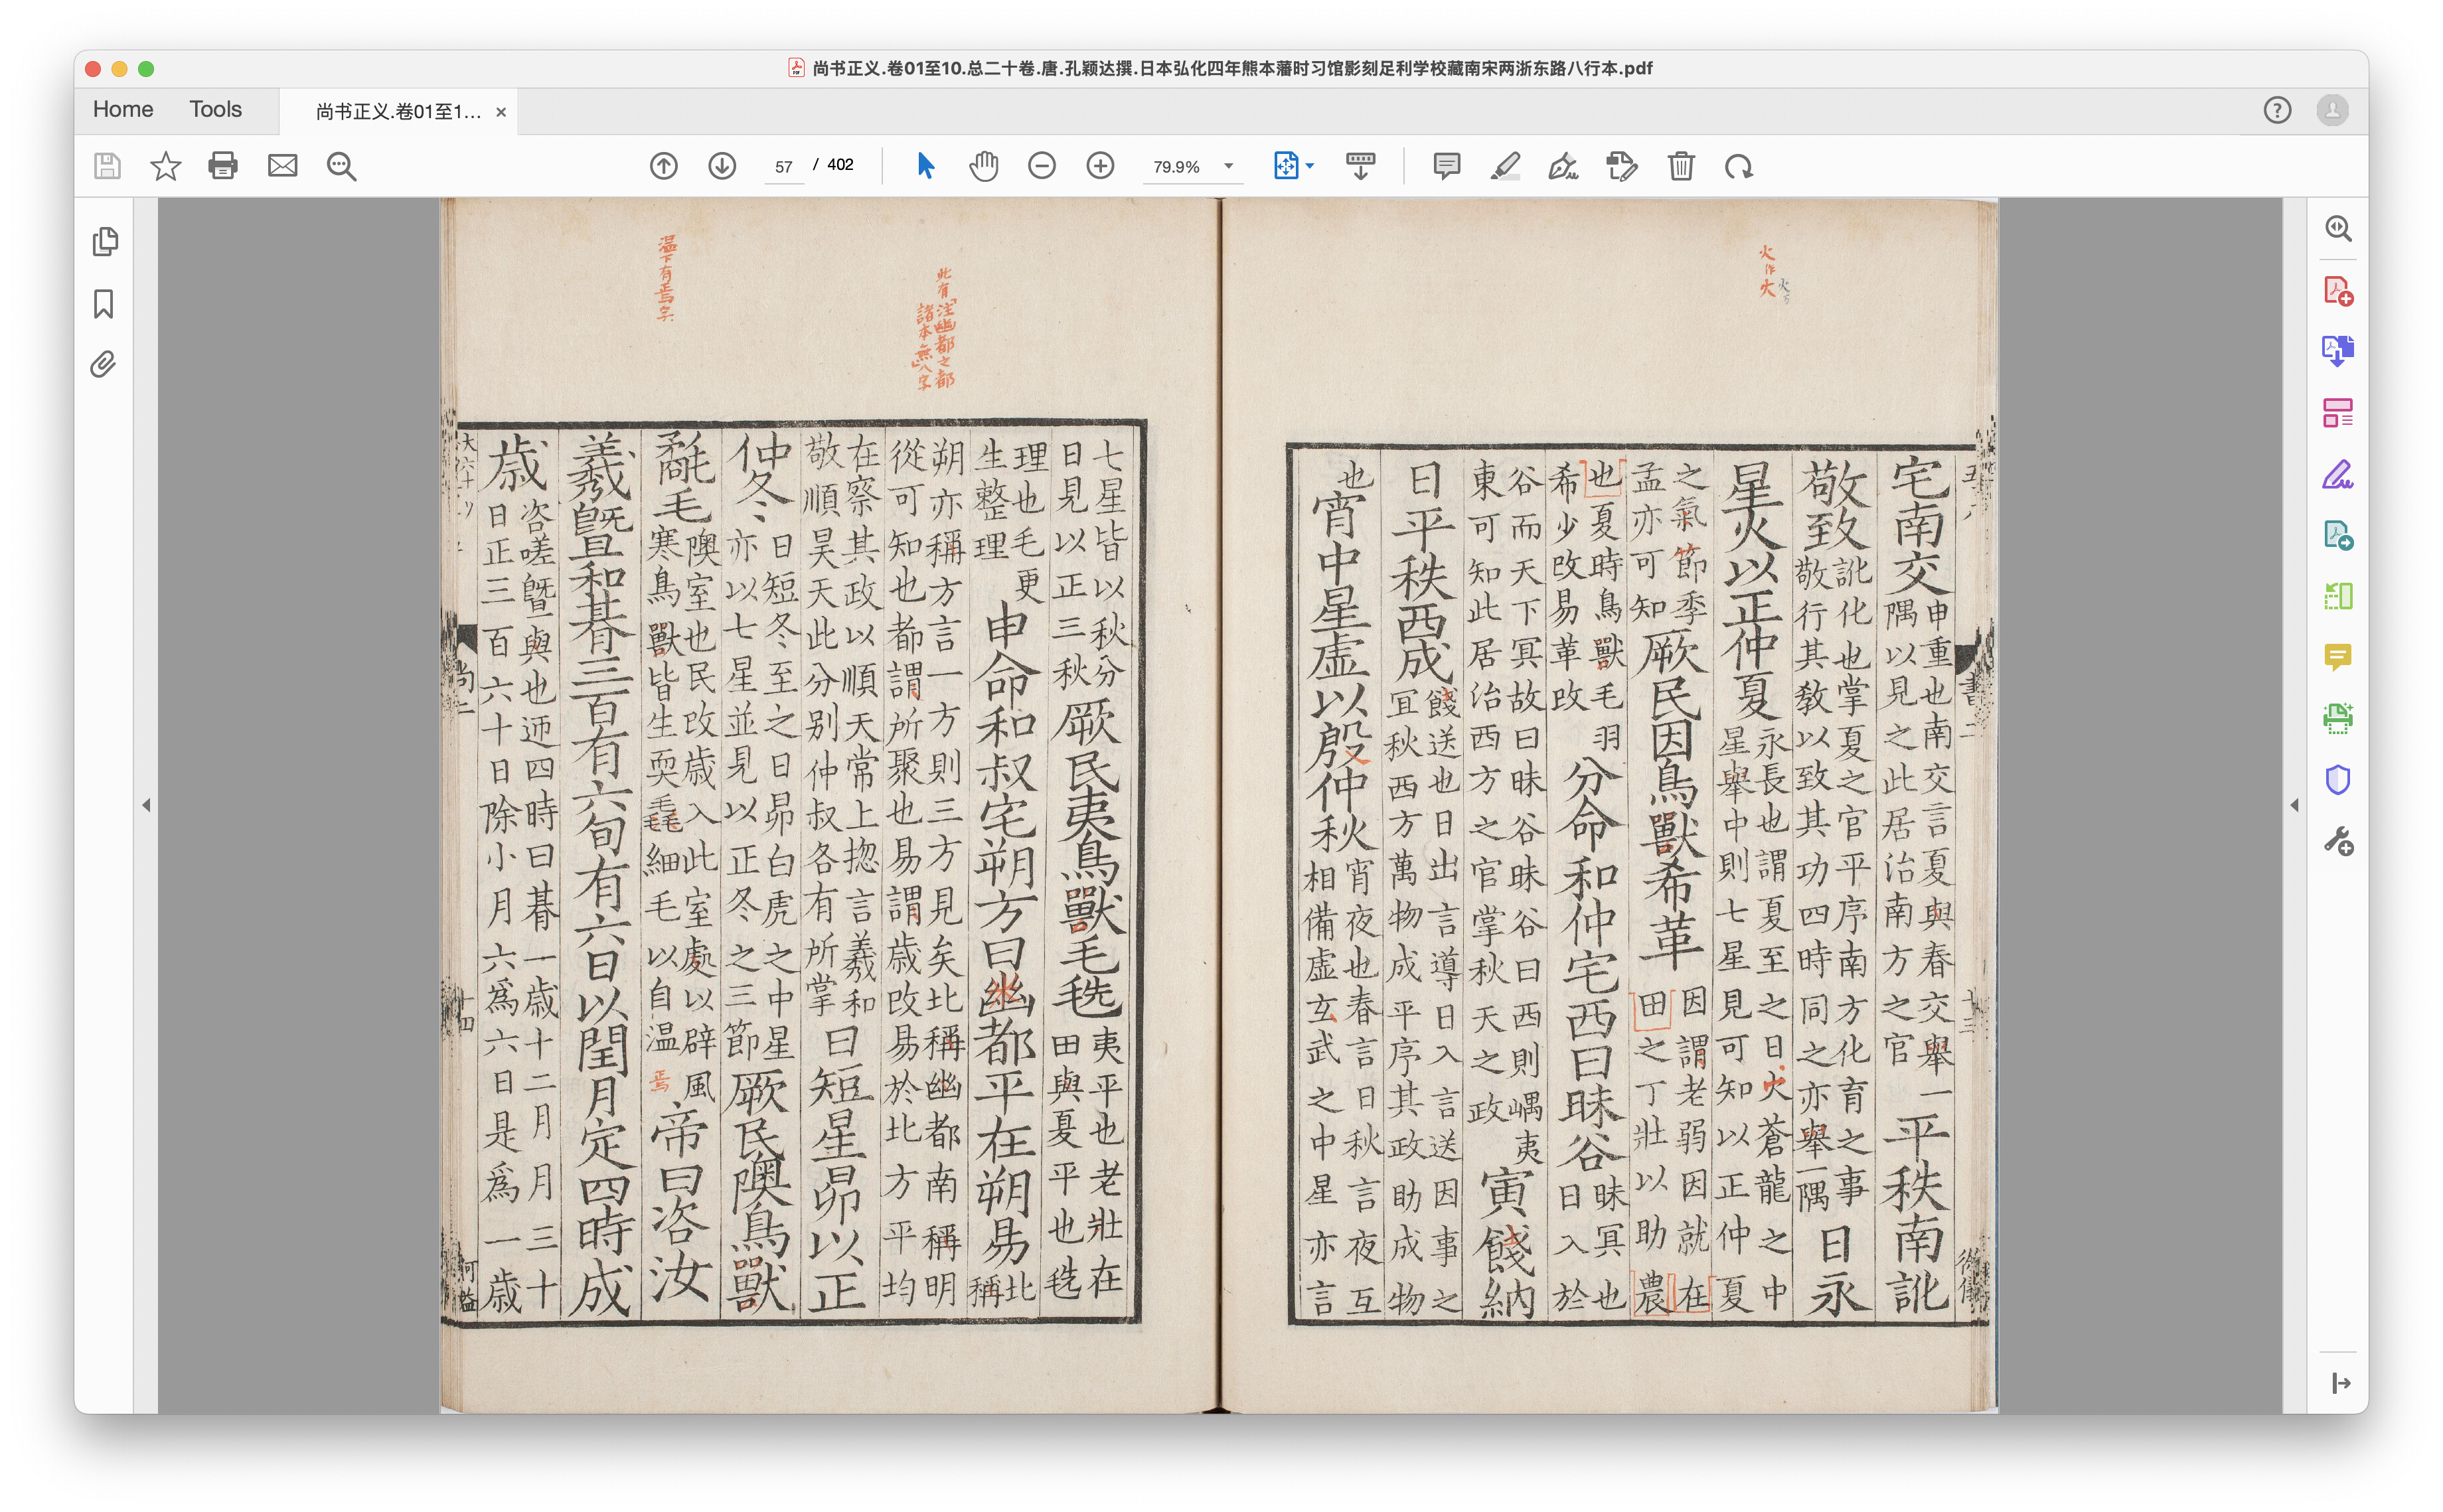 尚书正义.卷01至10.总二十卷.唐.孔颖达撰.日本弘化四年熊本藩时习馆影刻足利学校藏南宋两浙东路八行本.pdf
Home Tools 尚书正义.卷01至1... ×
57 / 402 79.9%
火作大
宅南交
申重也南交言夏與春交舉一
隅以見之此居治南方之官
平秩南訛
敬致
訛化也掌夏之官平序南方化育之事
敬行其敎以致其功四時同之亦舉一隅
日永
星火以正仲夏
永長也謂夏至之日火蒼龍之中
星舉中則七星見可知以正仲夏
之氣節季
孟亦可知
厥民因鳥獸希革
因謂老弱因就在
田之丁壯以助農
也夏時鳥獸毛羽
希少改易革改
分命和仲宅西曰昧谷
昧冥也
日入於
谷而天下冥故曰昧谷昧谷曰西則嵎夷
東可知此居治西方之官掌秋天之政
寅餞納
日平秩西成
餞送也日出言導日入言送因事之
宜秋西方萬物成平序其政助成物
也
宵中星虛以殷仲秋
宵夜也春言日秋言夜互
相備虛玄武之中星亦言
此有注幽都之都
諸本無八字
温下有焉字
七星皆以秋分
日見以正三秋
厥民夷鳥獸毛毨
夷平也老壯在
田與夏平也毨
理也毛更
生整理
申命和叔宅朔方曰幽都平在朔易
北
稱
朔亦稱方言一方則三方見矣北稱幽都南稱明
從可知也都謂所聚也易謂歲改易於北方平均
在察其政以順天常上揔言羲和
敬順昊天此分别仲叔各有所掌
日短星昴以正
仲冬
日短冬至之日昴白虎之中星
亦以七星並見以正冬之三節
厥民隩鳥獸
氄毛
隩室也民改歲入此室處以辟風
寒鳥獸皆生耎毳細毛以自温焉
帝曰咨汝
羲曁和朞三百有六旬有六日以閏月定四時成
歲
咨嗟曁與也迊四時曰朞一歲十二月月三十
日正三百六十日除小月六爲六日是爲一歲
尚二
十四